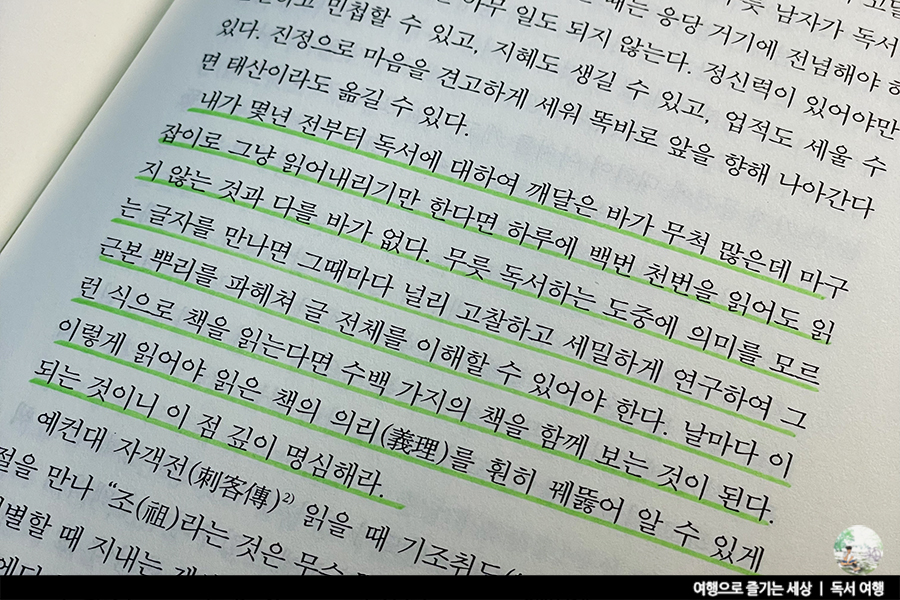 때는 응당 거기에 전념해야
아무 일도 되지 않는다. 정신력이 있어야만
민첩할 수 있고, 지혜도 생길 수 있고, 업적도 세울 수
있다. 진정으로 마음을 견고하게 세워 똑바로 앞을 향해 나아간다
면 태산이라도 옮길 수 있다.
내가 몇년 전부터 독서에 대하여 깨달은 바가 무척 많은데 마구
잡이로 그냥 읽어내리기만 한다면 하루에 백번 천번을 읽어도 읽
지 않는 것과 다를 바가 없다. 무릇 독서하는 도중에 의미를 모르
는 글자를 만나면 그때마다 널리 고찰하고 세밀하게 연구하여 그
근본 뿌리를 파헤쳐 글 전체를 이해할 수 있어야 한다. 날마다 이
런 식으로 책을 읽는다면 수백 가지의 책을 함께 보는 것이 된다.
이렇게 읽어야 읽은 책의 의리(義理)를 훤히 꿰뚫어 알 수 있게
되는 것이니 이 점 깊이 명심해라.
예컨대 자객전(刺客傳)2) 읽을 때 기조취도
절을 만나 "조(祖)라는 것은 무슨
별할 때 지내는
여행으로 즐기는 세상 | 독서 여행